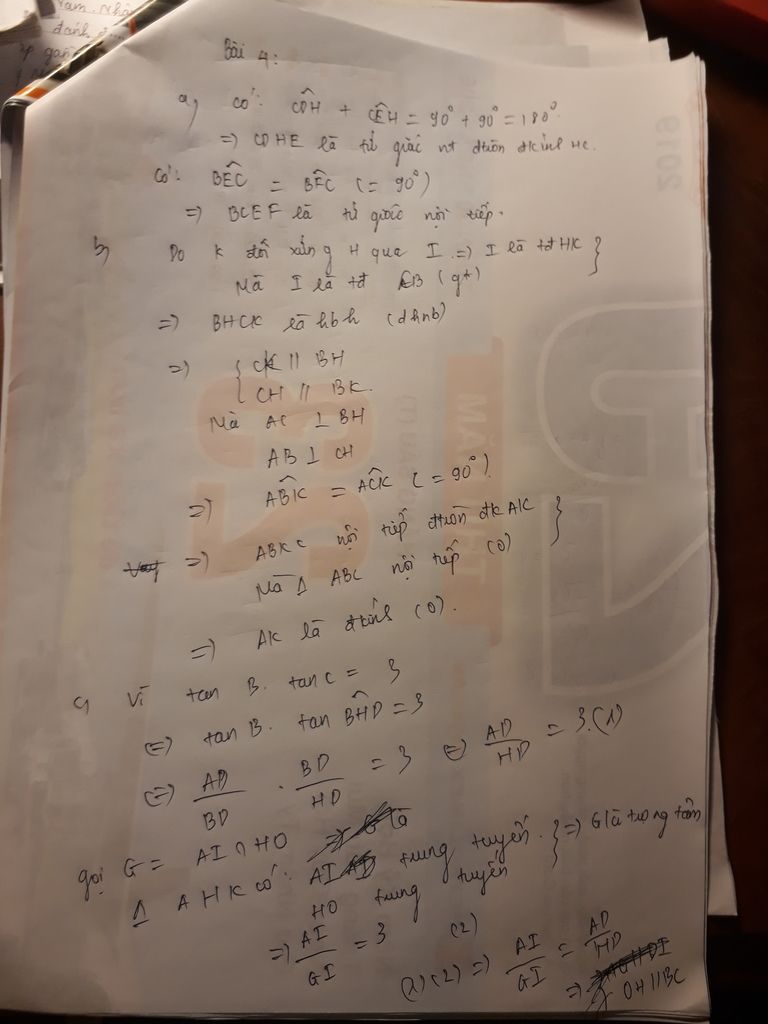 Bài 4:
a, Có: CDH + CEH = 90° + 90° = 180°.
=> CDHE là tứ giác nt đtròn đkính HC.
Có: BEC = BFC (= 90°)
=> BCEF là tứ giác nội tiếp.
b, Do K đối xứng H qua I => I là tđ HK }
Mà I là tđ CB (gt)
=> BHCK là hbh (dhnb)
=> { CK // BH
CH // BK.
Mà AC ⊥ BH
AB ⊥ CH
=> ABK = ACK (= 90°).
=> ABKC nội tiếp đtròn đk AK }
Mà Δ ABC nội tiếp (O)
=> AK là đkính (O).
c, Vì tan B. tan C = 3
<=> tan B. tan BHD = 3
<=> AD/BD . BD/HD = 3 <=> AD/HD = 3.(1)
gọi G = AI ∩ HO
Δ AHK có: AI trung tuyến. } => G là trọng tâm
HO trung tuyến
=> AI/GI = 3 (2)
(1)(2) => AI/GI = AD/HD
=> OH // BC
2019